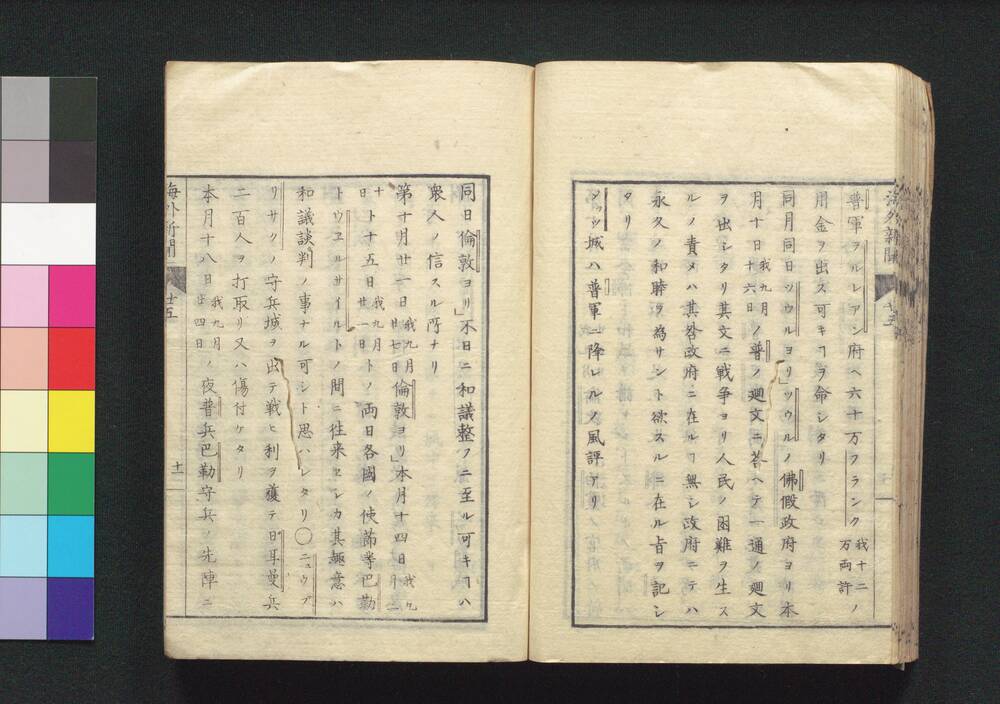 普軍ヲルレアン府ヘ六十万フランク我十二万両許ノ
用金ヲ出ス可キヿヲ命シタリ
同月同日ツウルヨリ」ツウルノ佛假政府ヨリ本
月十日我九月十六日ノ普ノ廻文ニ荅ヘテ一通ノ廻文
ヲ出シタリ其文ニ戦争ヨリ人民ノ困難ヲ生ス
ルノ責メハ其咎政府ニ在ルヿ無シ政府ニテハ
永久ノ和睦ヲ為サント欲スルニ在ル旨ヲ記シ
タリ
城ハ普軍ニ降レルノ風評アリ
同日倫敦ヨリ」不日ニ和議整フニ至ル可キヿハ
衆人ノ信スル所ナリ
第十月廿一日我九月廿七日倫敦ヨリ」本月十四日我九月二
十日ト十五日我九月廿一日トノ両日各國ノ使節等巴勒
トウヱルサイルトノ間ニ往来セシカ其趣意ハ
和議談判ノ事ナル可シト思ハレタリ〇ニュウブ
リサクノ守兵城ヲ出テ戦ヒ利ヲ獲テ日耳曼兵
二百人ヲ打取リ又ハ傷付ケタリ
本月十八日我九月廿四日ノ夜普兵巴勒守兵ノ先陣ニ
海外新聞
十五
十一